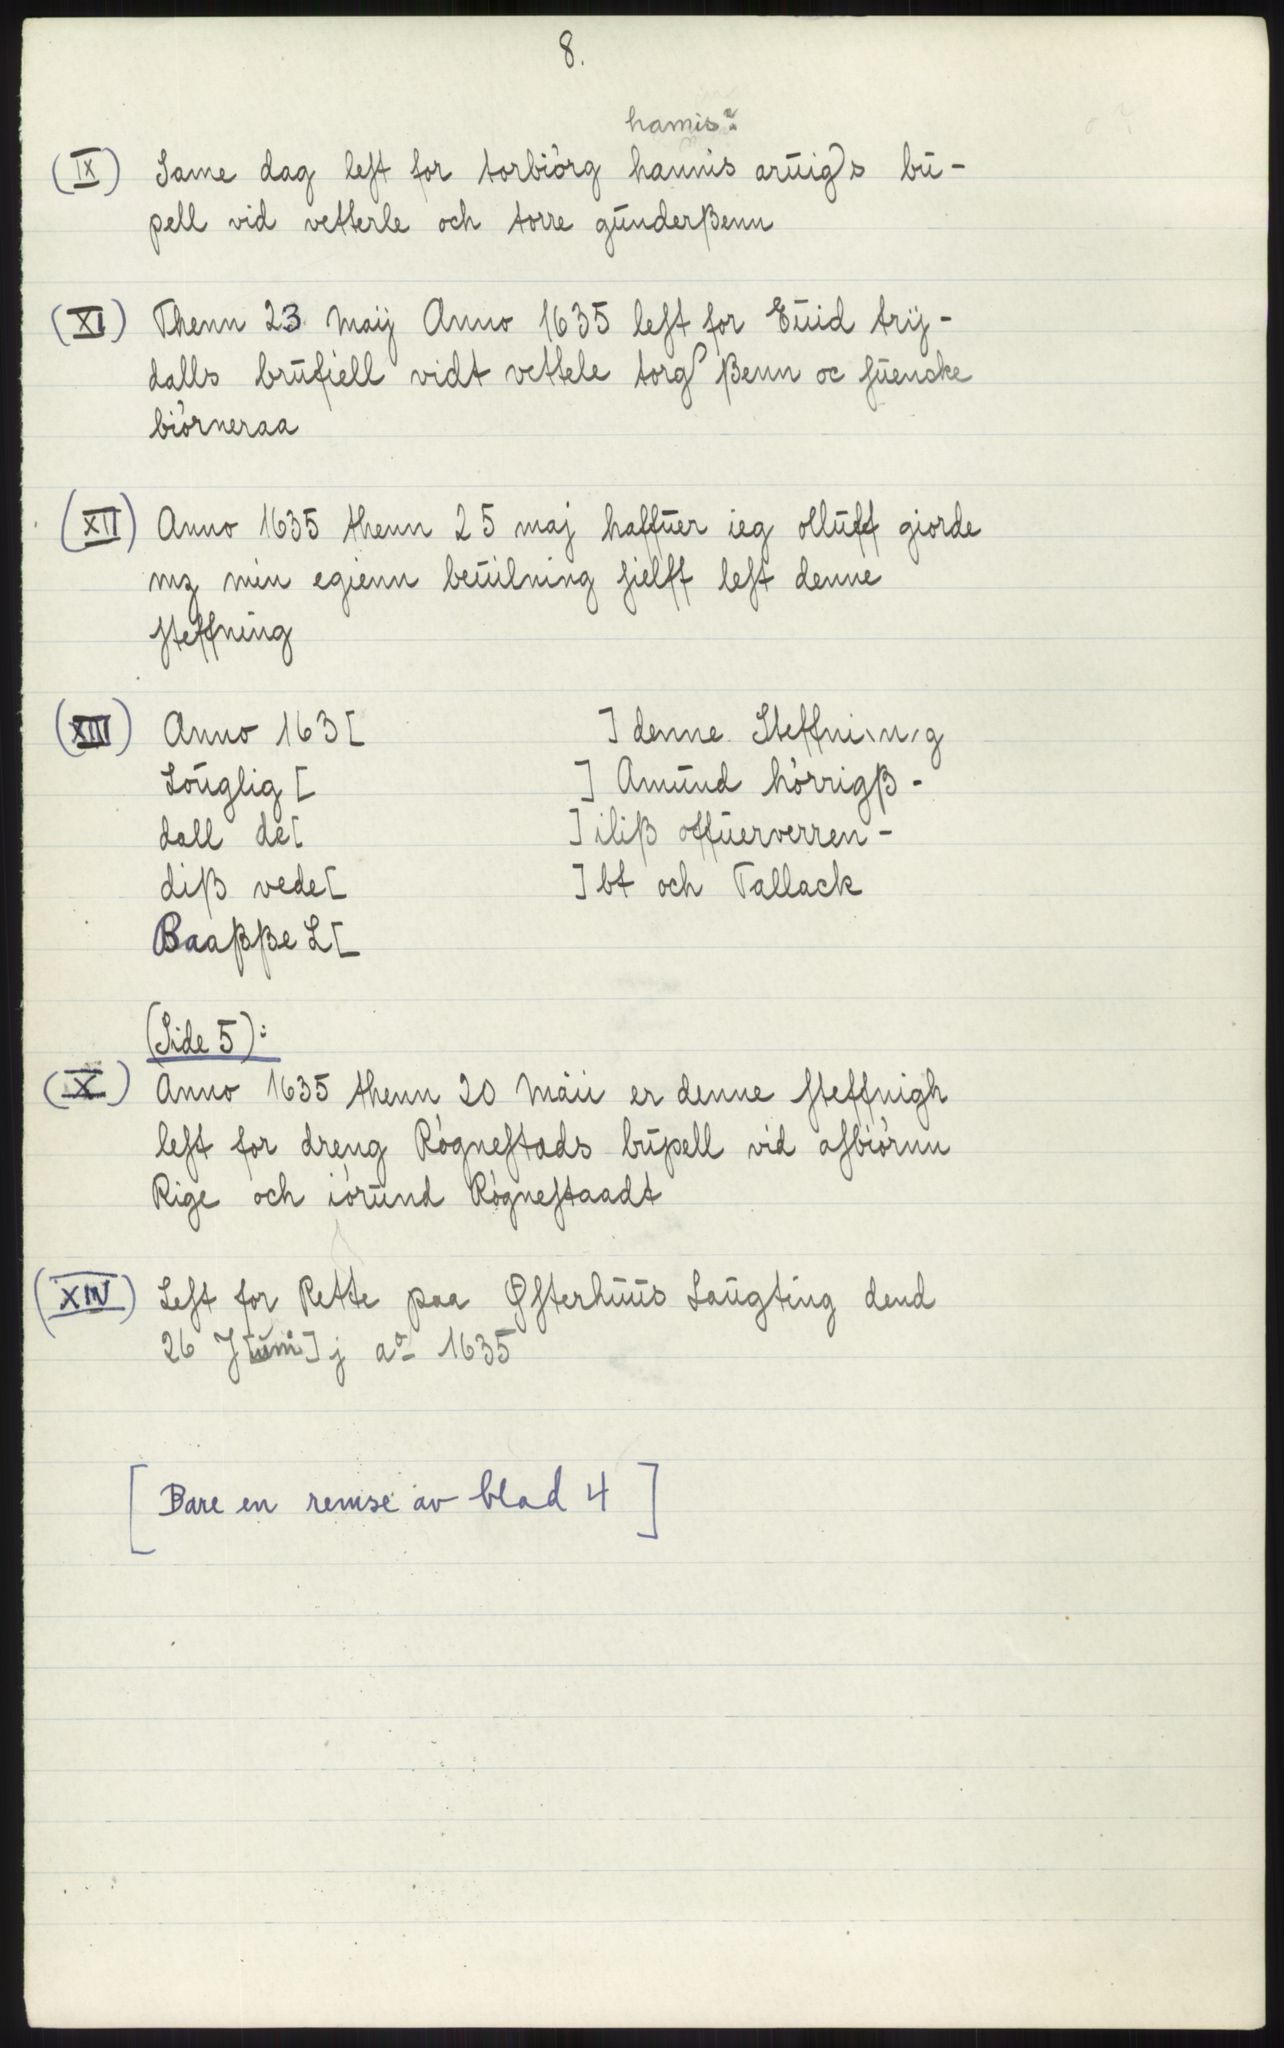 8.
hamis?
(IX) Same dag leſt for torbiörg hannis arŭigs bŭ-
pell vid vetterle och torre gŭnderßenn
(XI) Thenn 23 Maij Anno 1635 leſt for Eŭid trij-
dalls brŭfiell vidt vettele torg ßenn oc ſŭencke
biörneraa
(XII) Anno 1635 thenn 25 maj haffŭer ieg ollŭff giorde
mz min egienn beŭilning ſielff leſt denne
ſteffning
(XIII) Anno 163[ ] denne Steffning
Loŭglig [ ] Amŭnd hörrigß-
dall de[ ] iliß offŭerverren-
diß vede[ ] bt och Tallack
Baaßße L[
(Side 5):
(X) Anno 1635 thenn 20 Máii er denne ſteffnigh
leſt for dreng Rögneſtads bŭpell vid aſbiörnn
Rige och iörŭnd Rögneſtaadt
(XIV) Leſt for Rette paa Øſterhŭŭs Laŭgting dend
26 J[ŭni]j aº 1635
[Bare en remse av blad 4]